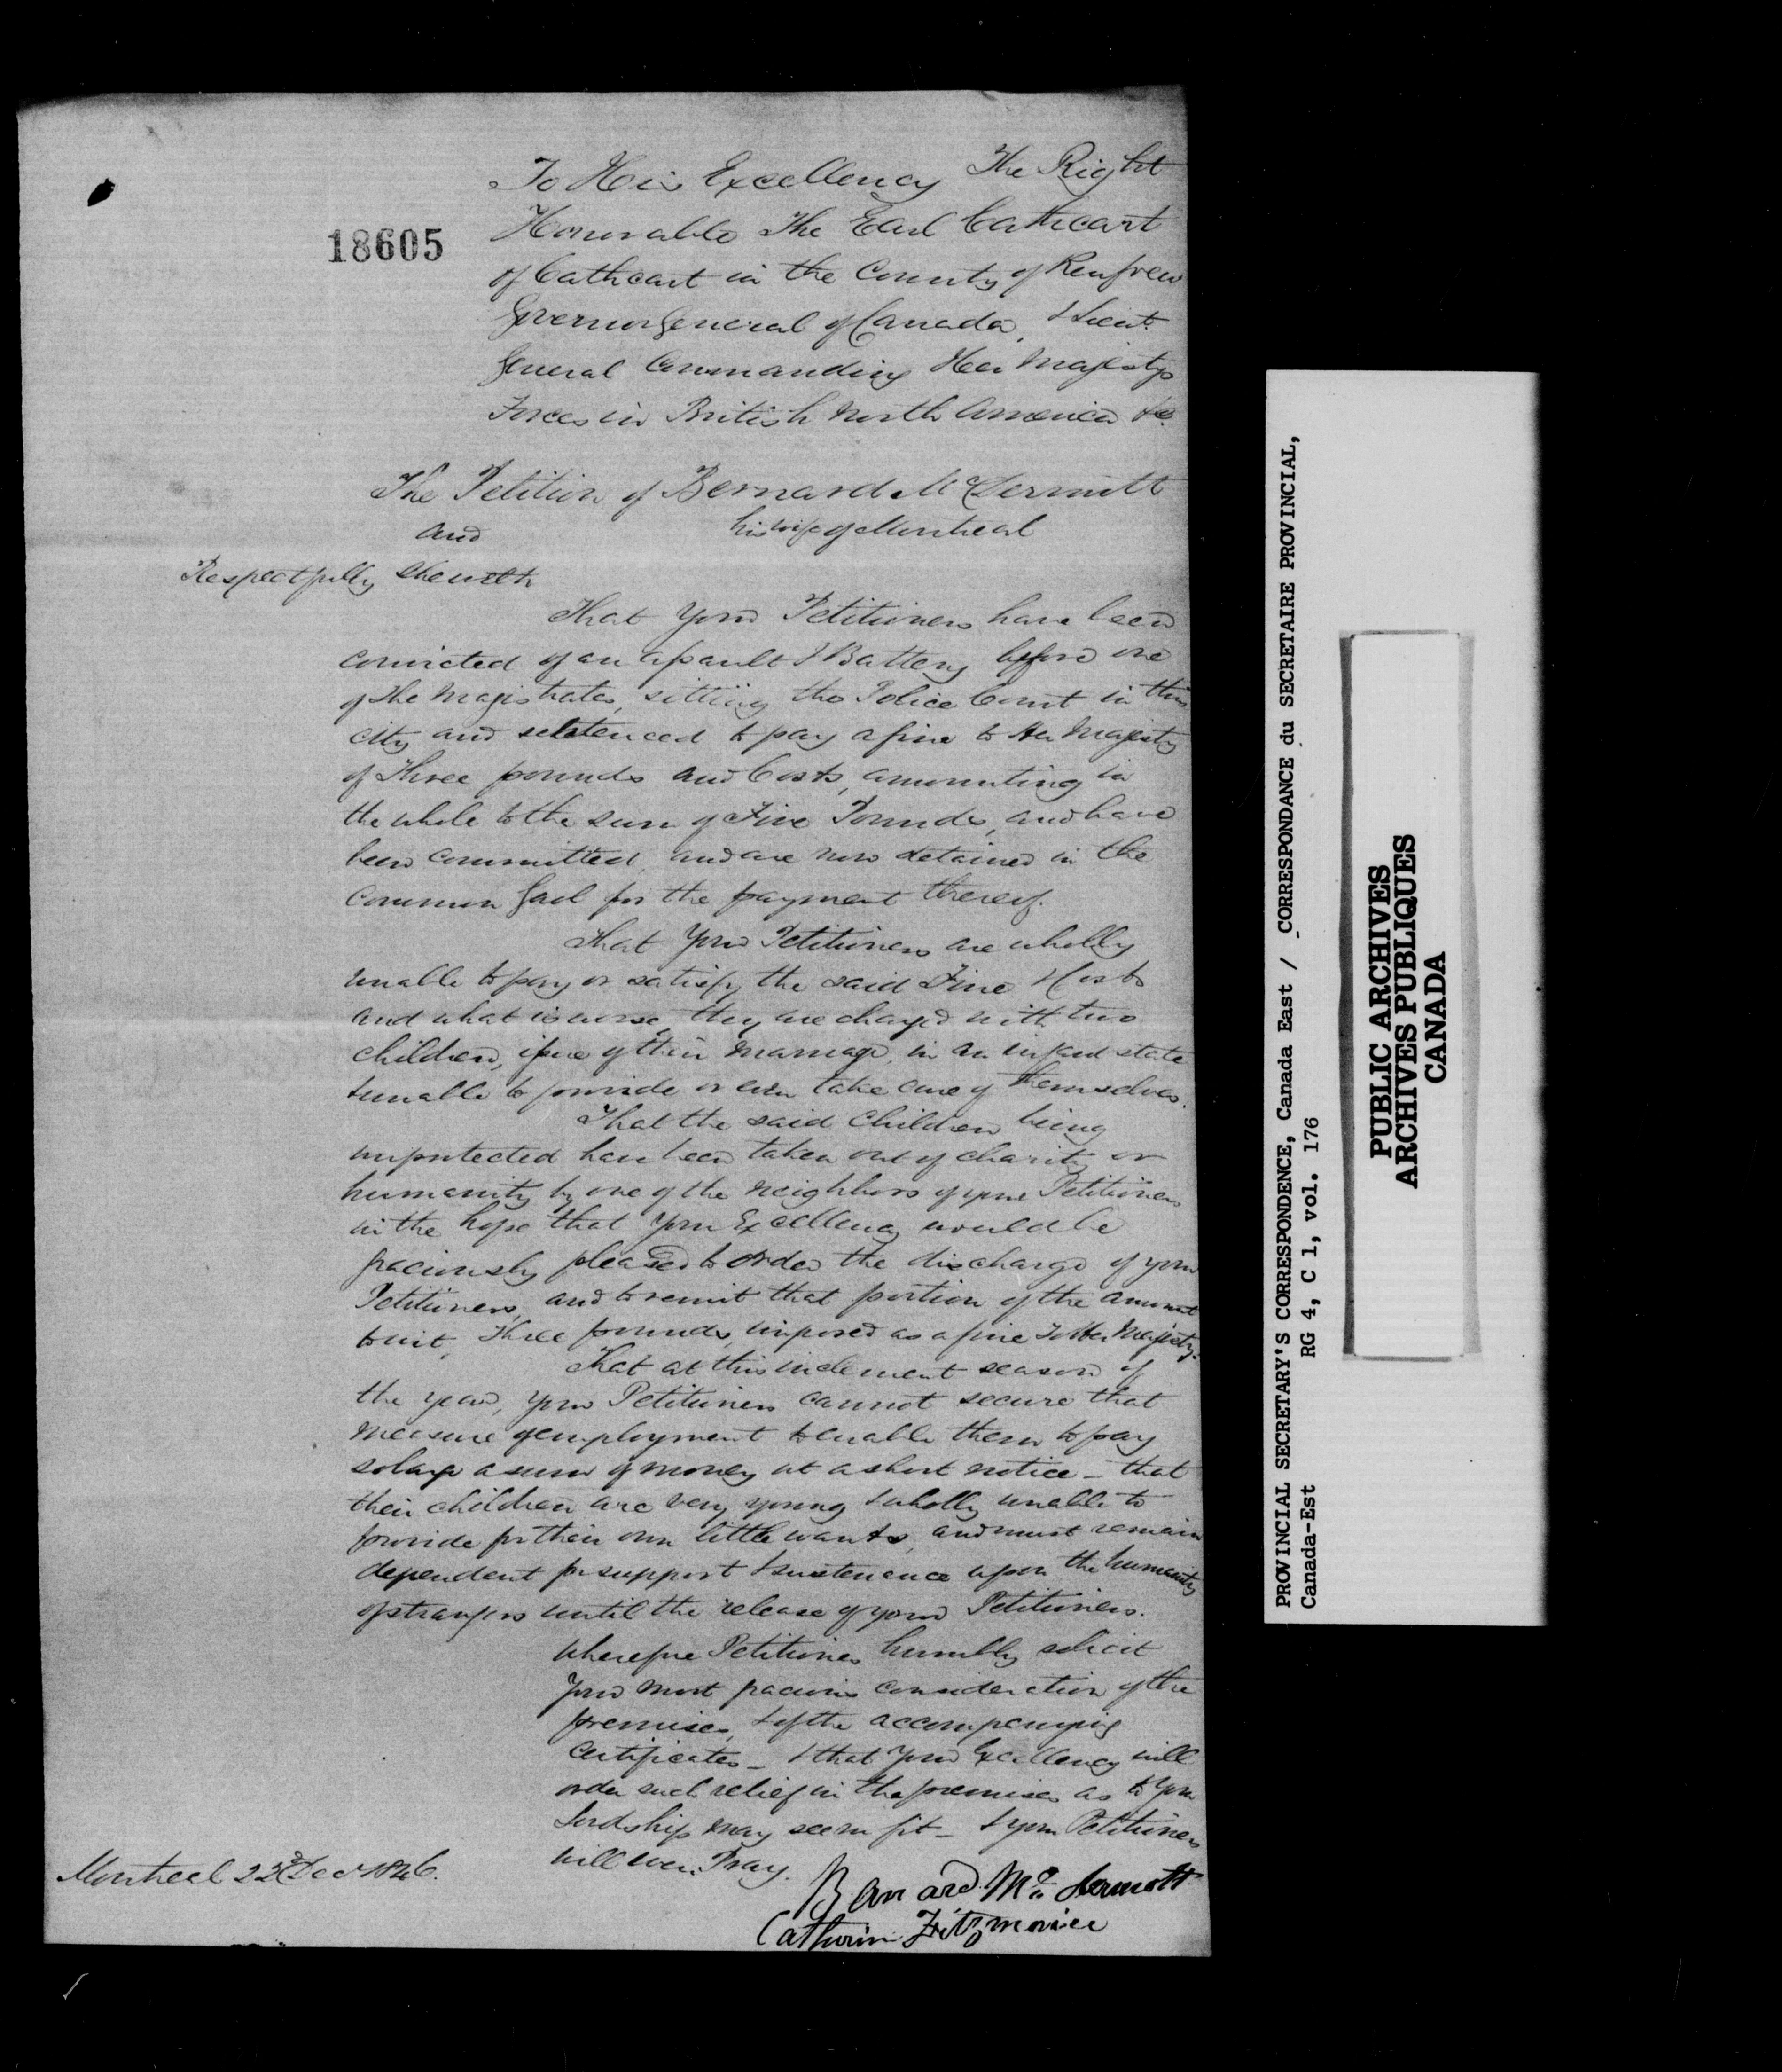 18605
To His Excellency The Right
Honorable The Earl Cathcart
of Cathcart in the County of Renfrew
Governor General of Canada, & Lieut.
General Commanding Her Majestys
Forces in British North America &c.
The Petition of Bernard McDermott
and his wife of Montreal
Respectfully Sheweth
That Your Petitioners have been
convicted of an assault & Battery before one
of the Magistrates, sitting the Police Court in this
city and sentenced to pay a fine to Her Majesty
of Three pounds and Costs, amounting in
the whole to the sum of Five Pounds, and have
been committed, and are now detained in the
common Gaol for the payment thereof.
That Your Petitioners are wholly
unable to pay or satisfy the said Fine & Costs
and what is worse, they are charged with two
children, issue of their marriage, in an infant state
& unable to provide or even take care of themselves.
That the said Children being
unprotected have been taken out of charity or
humanity by one of the neighbors of your Petitioners
in the hope that Your Excellency would be
graciously pleased to order the discharge of your
Petitioners, and to remit that portion of the amount
to wit, Three pounds, imposed as a fine To Her Majesty.
That at this inclement season of
the year, your Petitioners cannot secure that
measure of employment to enable them to pay
so large a sum of money at a short notice - that
their children are very young & wholly unable to
provide for their own little wants, and must remain
dependent for support & sustenance upon the humanity
of strangers until the release of your Petitioners.
Wherefore Petitioners humbly solicit
Your most gracious consideration of the
premises, & of the accompanying
certificates - & that Your Excellency will
order such relief in the premises as to Your
Lordship may seem fit - & your Petitioners
will ever Pray.
Montreal 23d Decr 1846.
Barnard Mc Dermott
Catherin Fitzmorice
PROVINCIAL SECRETARY'S CORRESPONDENCE, Canada East / CORRESPONDANCE du SECRETAIRE PROVINCIAL,
Canada-Est RG 4, C 1, vol. 176
PUBLIC ARCHIVES
ARCHIVES PUBLIQUES
CANADA